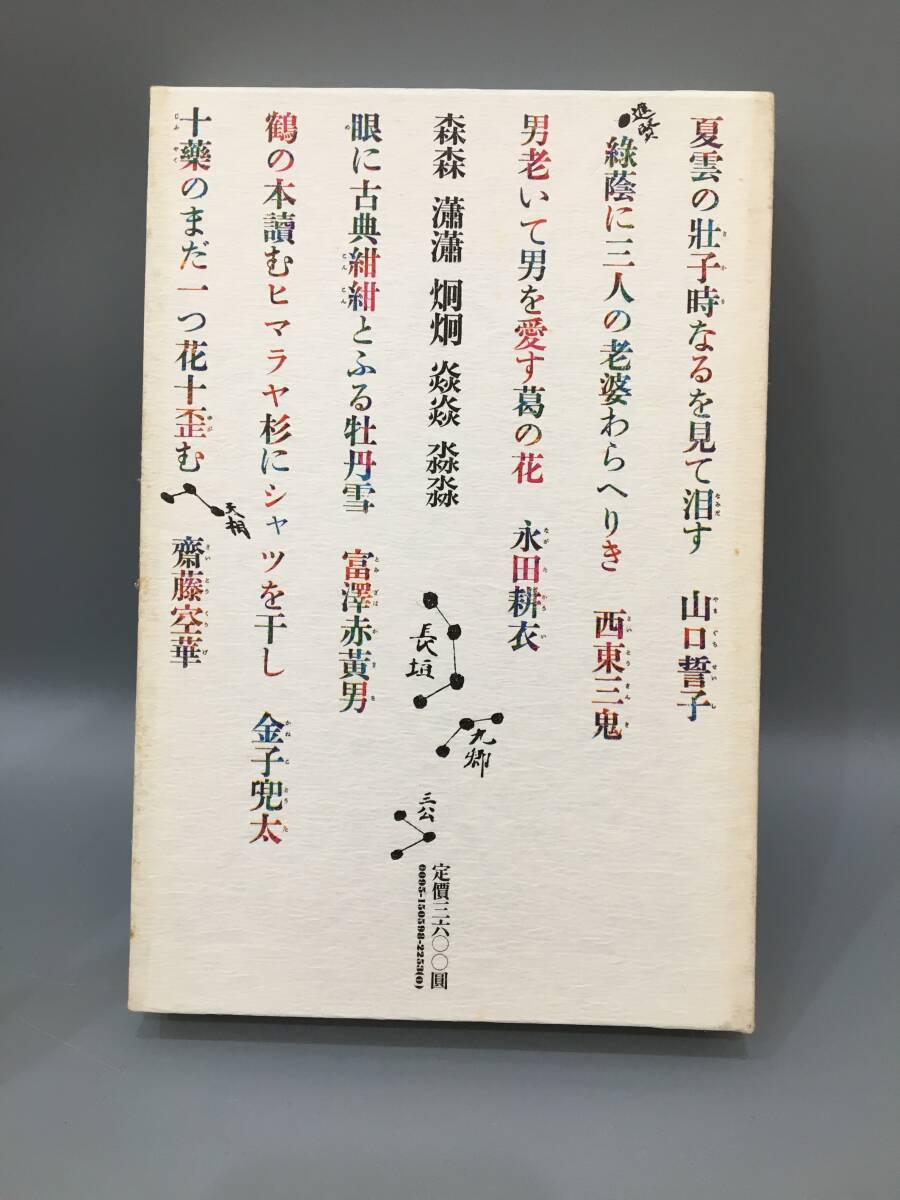 夏雲の壯子時なるを見て泪す　山口誓子
進賢
綠蔭に三人の老婆わらへりき　西東三鬼
男老いて男を愛す葛の花　永田耕衣
森森　瀟瀟　炯炯　焱焱　淼淼
長垣
九卿
三公
定價三六〇〇圓
0095-150598-2253(0)
眼に古典紺紺とふる牡丹雪　富澤赤黃男
鶴の本讀むヒマラヤ杉にシャツを干し　金子兜太
天相
十藥のまだ一つ花十歪む　齋藤空華